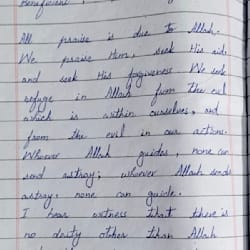 Beneficient,
All praise is due to Allah.
We praise Him, seek His aid
and seek His forgiveness. We seek
refuge in Allah from the evil
which is within ourselves, and
from the evil in our actions.
Whoever Allah guides, none can
send astray; whoever Allah sends
astray, none can guide.
I bear witness that there is
no deity other than Allah